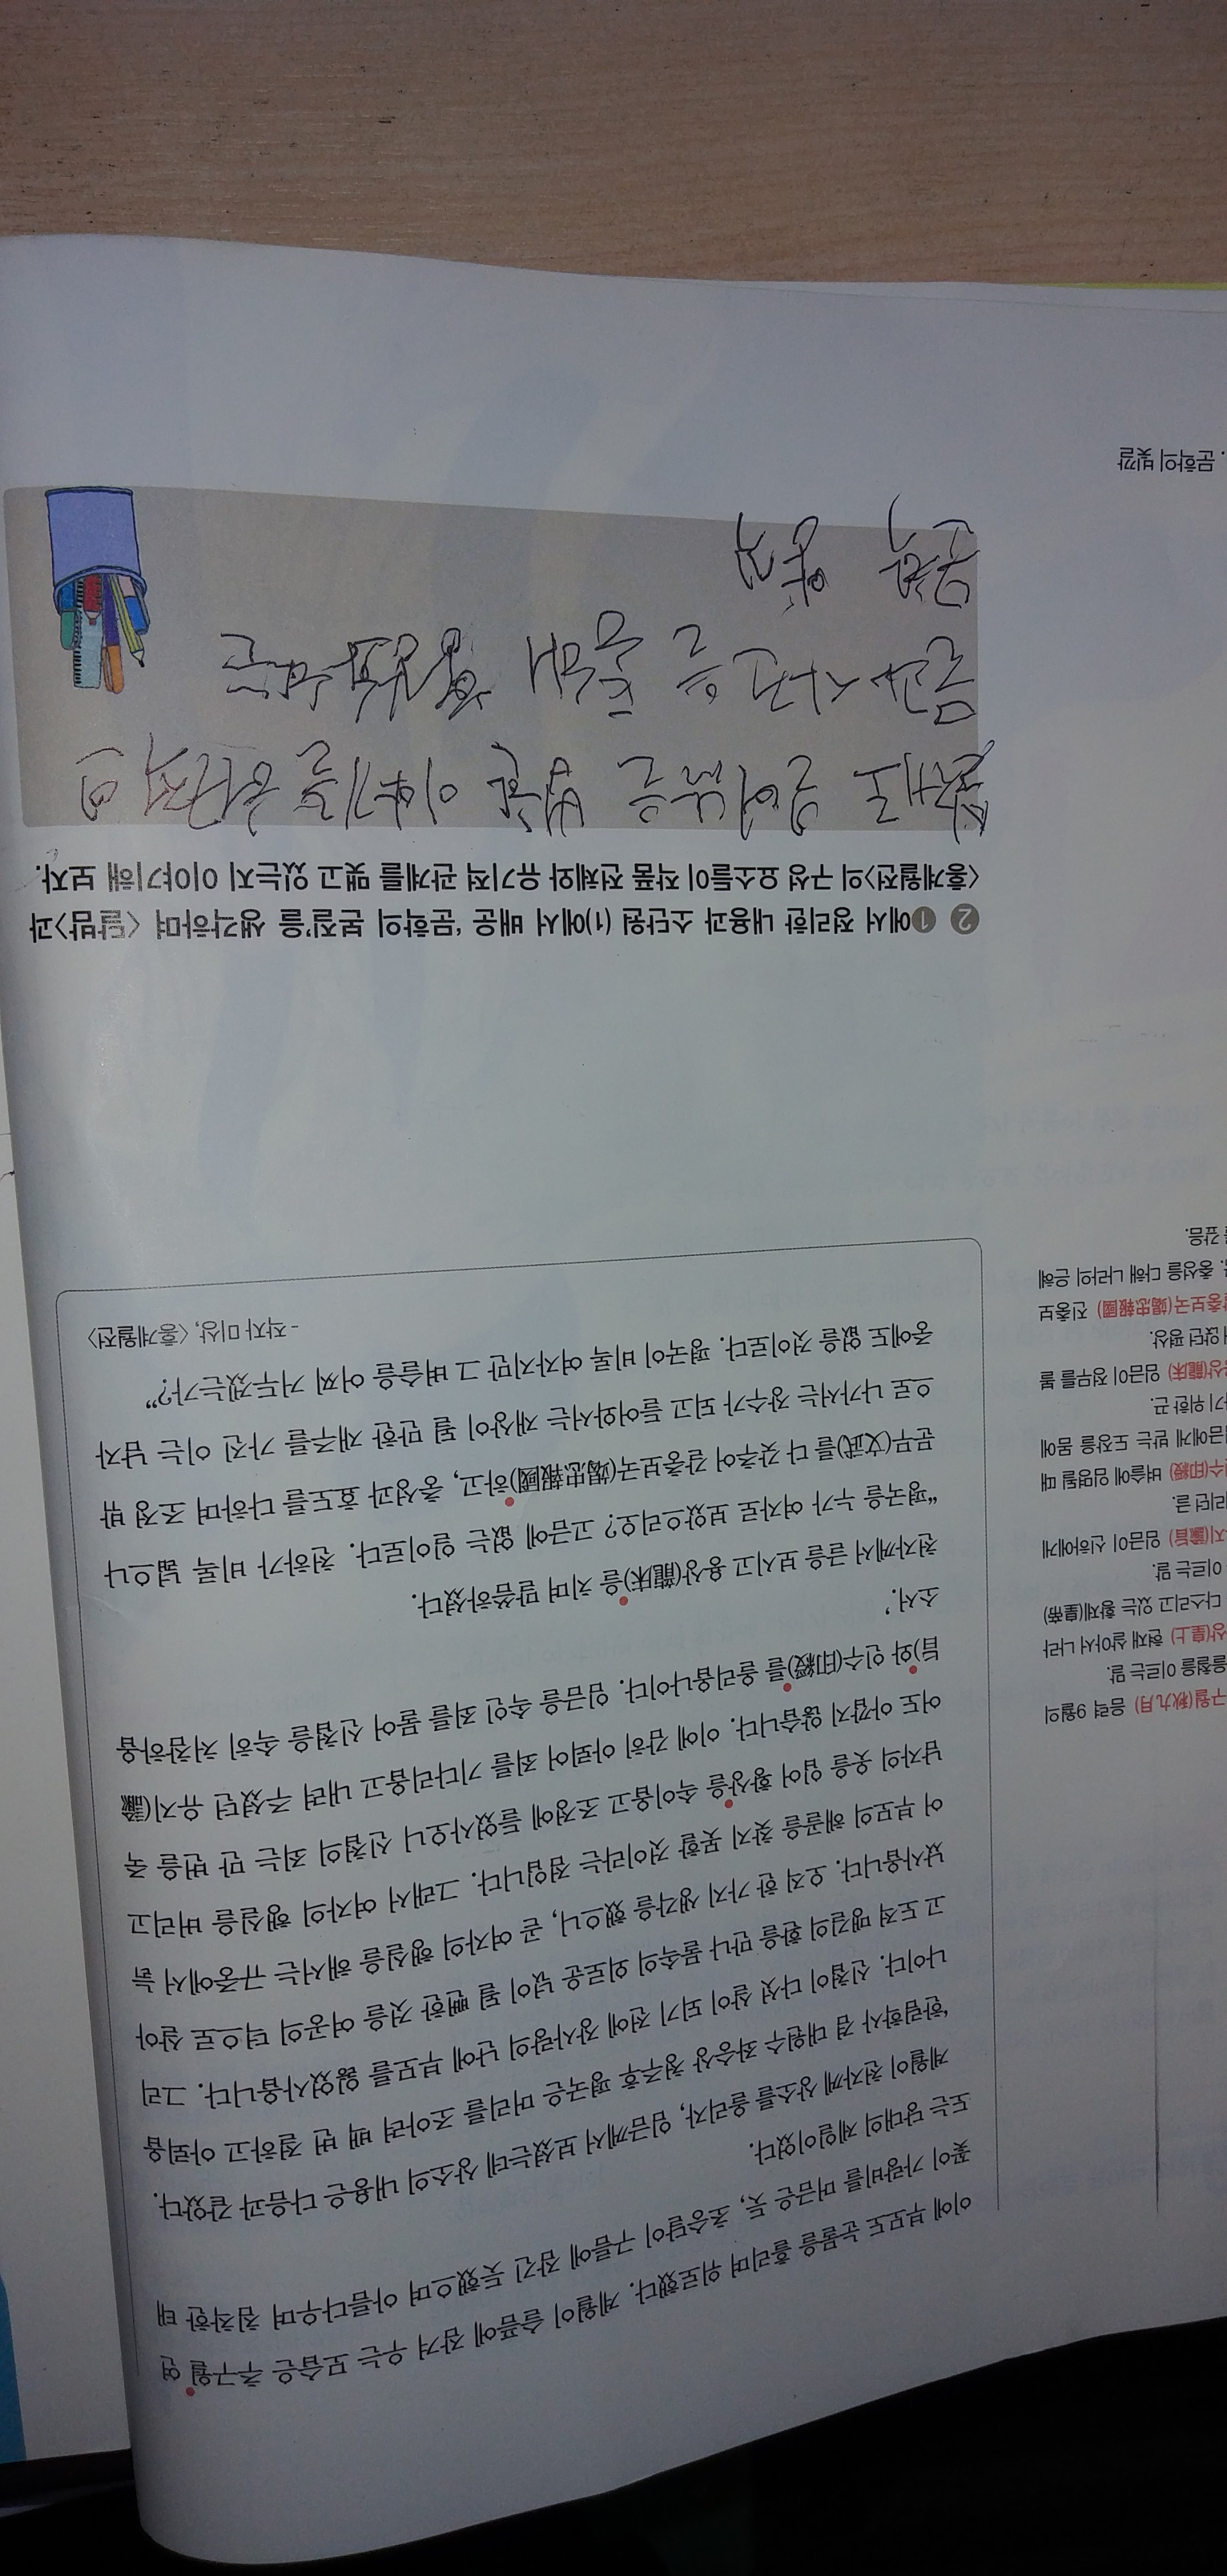 이에 부모도 눈물을 흘리며 위로했다. 계월이 슬픔에 잠겨 우는 모습은 추구월 연
꽃이 가랑비를 머금은 듯, 초승달이 구름에 잠긴 듯했으며 아름다우며 침착한 태
도는 당대의 제일이었다.
계월이 천자께 상소를 올리자, 임금께서 보셨는데 상소의 내용은 다음과 같았다.
‘한림학사 겸 대원수 좌승상 청주후 평국은 머리를 조아려 백 번 절하고 아뢰옵
나이다. 신첩이 다섯 살이 되기 전에 장사랑의 난에 부모를 잃었사옵니다. 그리
고 도적 맹길의 환을 만나 물속의 외로운 넋이 될 뻔한 것을 여공의 덕으로 살아
났사옵니다. 오직 한 가지 생각을 했으니, 곧 여자의 행실을 해서는 규중에서 늙
어 부모의 해골을 찾지 못할 것이라는 점입니다. 그래서 여자의 행실을 버리고
남자의 옷을 입어 황상을 속이옵고 조정에 들었사오니 신첩의 죄는 만 번을 죽
어도 아깝지 않습니다. 이에 감히 아뢰어 죄를 기다리옵고 내려 주셨던 유지(諭
旨)와 인수(印綬)를 올리옵나이다. 임금을 속인 죄를 물어 신첩을 속히 처참하옵
소서.’
천자께서 글을 보시고 용상(龍床)을 치며 말씀하셨다.
“평국을 누가 여자로 보았으리오? 고금에 없는 일이로다. 천하가 비록 넓으나
문무(文武)를 다 갖추어 갈충보국(竭忠報國)하고, 충성과 효도를 다하며 조정 밖
으로 나가서는 장수가 되고 들어와서는 재상이 될 만한 재주를 가진 이는 남자
중에도 없을 것이로다. 평국이 비록 여자지만 그 벼슬을 어찌 거두겠는가?”
- 작자 미상, 〈홍계월전〉
구월(秋九月) 음력 9월의
을철을 이르는 말.
상(皇上) 현재 살아서 나라
다스리고 있는 황제(皇帝)
이르는 말.
지(諭旨) 임금이 신하에게
리던 글.
인수(印綬) 벼슬에 임명될 때
금에게 받는 도장을 몸에
기 위한 끈.
상(龍床) 임금이 정무를 볼
앉던 평상.
갈충보국(竭忠報國) 진충보
. 충성을 다해 나라의 은혜
를 갚음.
2 1에서 정리한 내용과 소단원 (1)에서 배운 ‘문학의 본질’을 생각하며 〈달밤〉과
〈홍계월전〉의 구성 요소들이 작품 전체와 유기적 관계를 맺고 있는지 이야기해 보자.
이야기를
. 문학의 빛깔